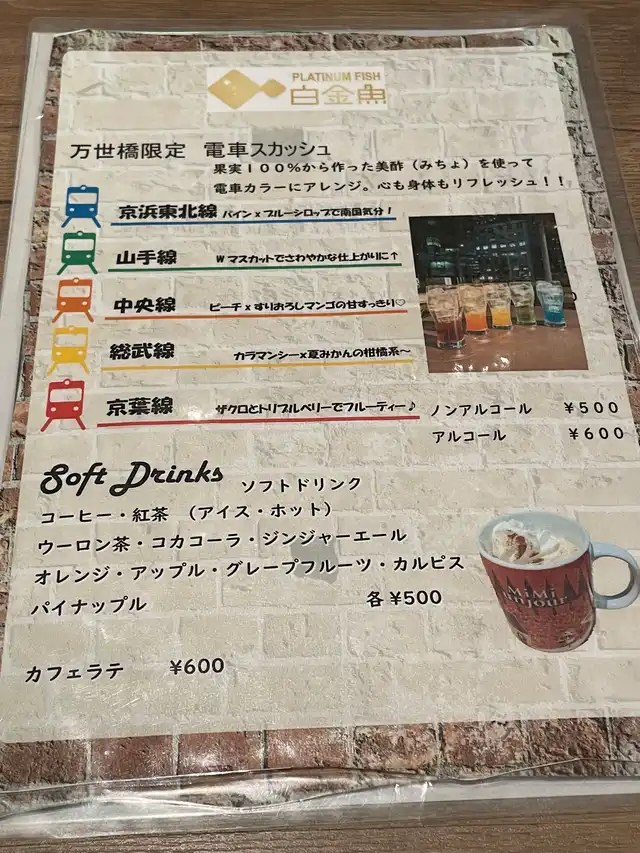 PLATINUM FISH
白金魚
万世橋限定 電車スカッシュ
果実100%から作った美酢（みちょ）を使って
電車カラーにアレンジ。心も身体もリフレッシュ！！
京浜東北線 パイン x ブルーシロップで南国気分！
山手線 W マスカットでさわやかな仕上がりに↑
中央線 ピーチ x すりおろしマンゴの甘すっきり♡
総武線 カラマンシーx夏みかんの柑橘系～
京葉線 ザクロとトリプルベリーでフルーティー♪
ノンアルコール ¥500
アルコール ¥600
Soft Drinks ソフトドリンク
コーヒー・紅茶 （アイス・ホット）
ウーロン茶・コカコーラ・ジンジャーエール
オレンジ・アップル・グレープフルーツ・カルピス
パイナップル 各 ¥500
MiMi
BonJour
カフェラテ ¥600